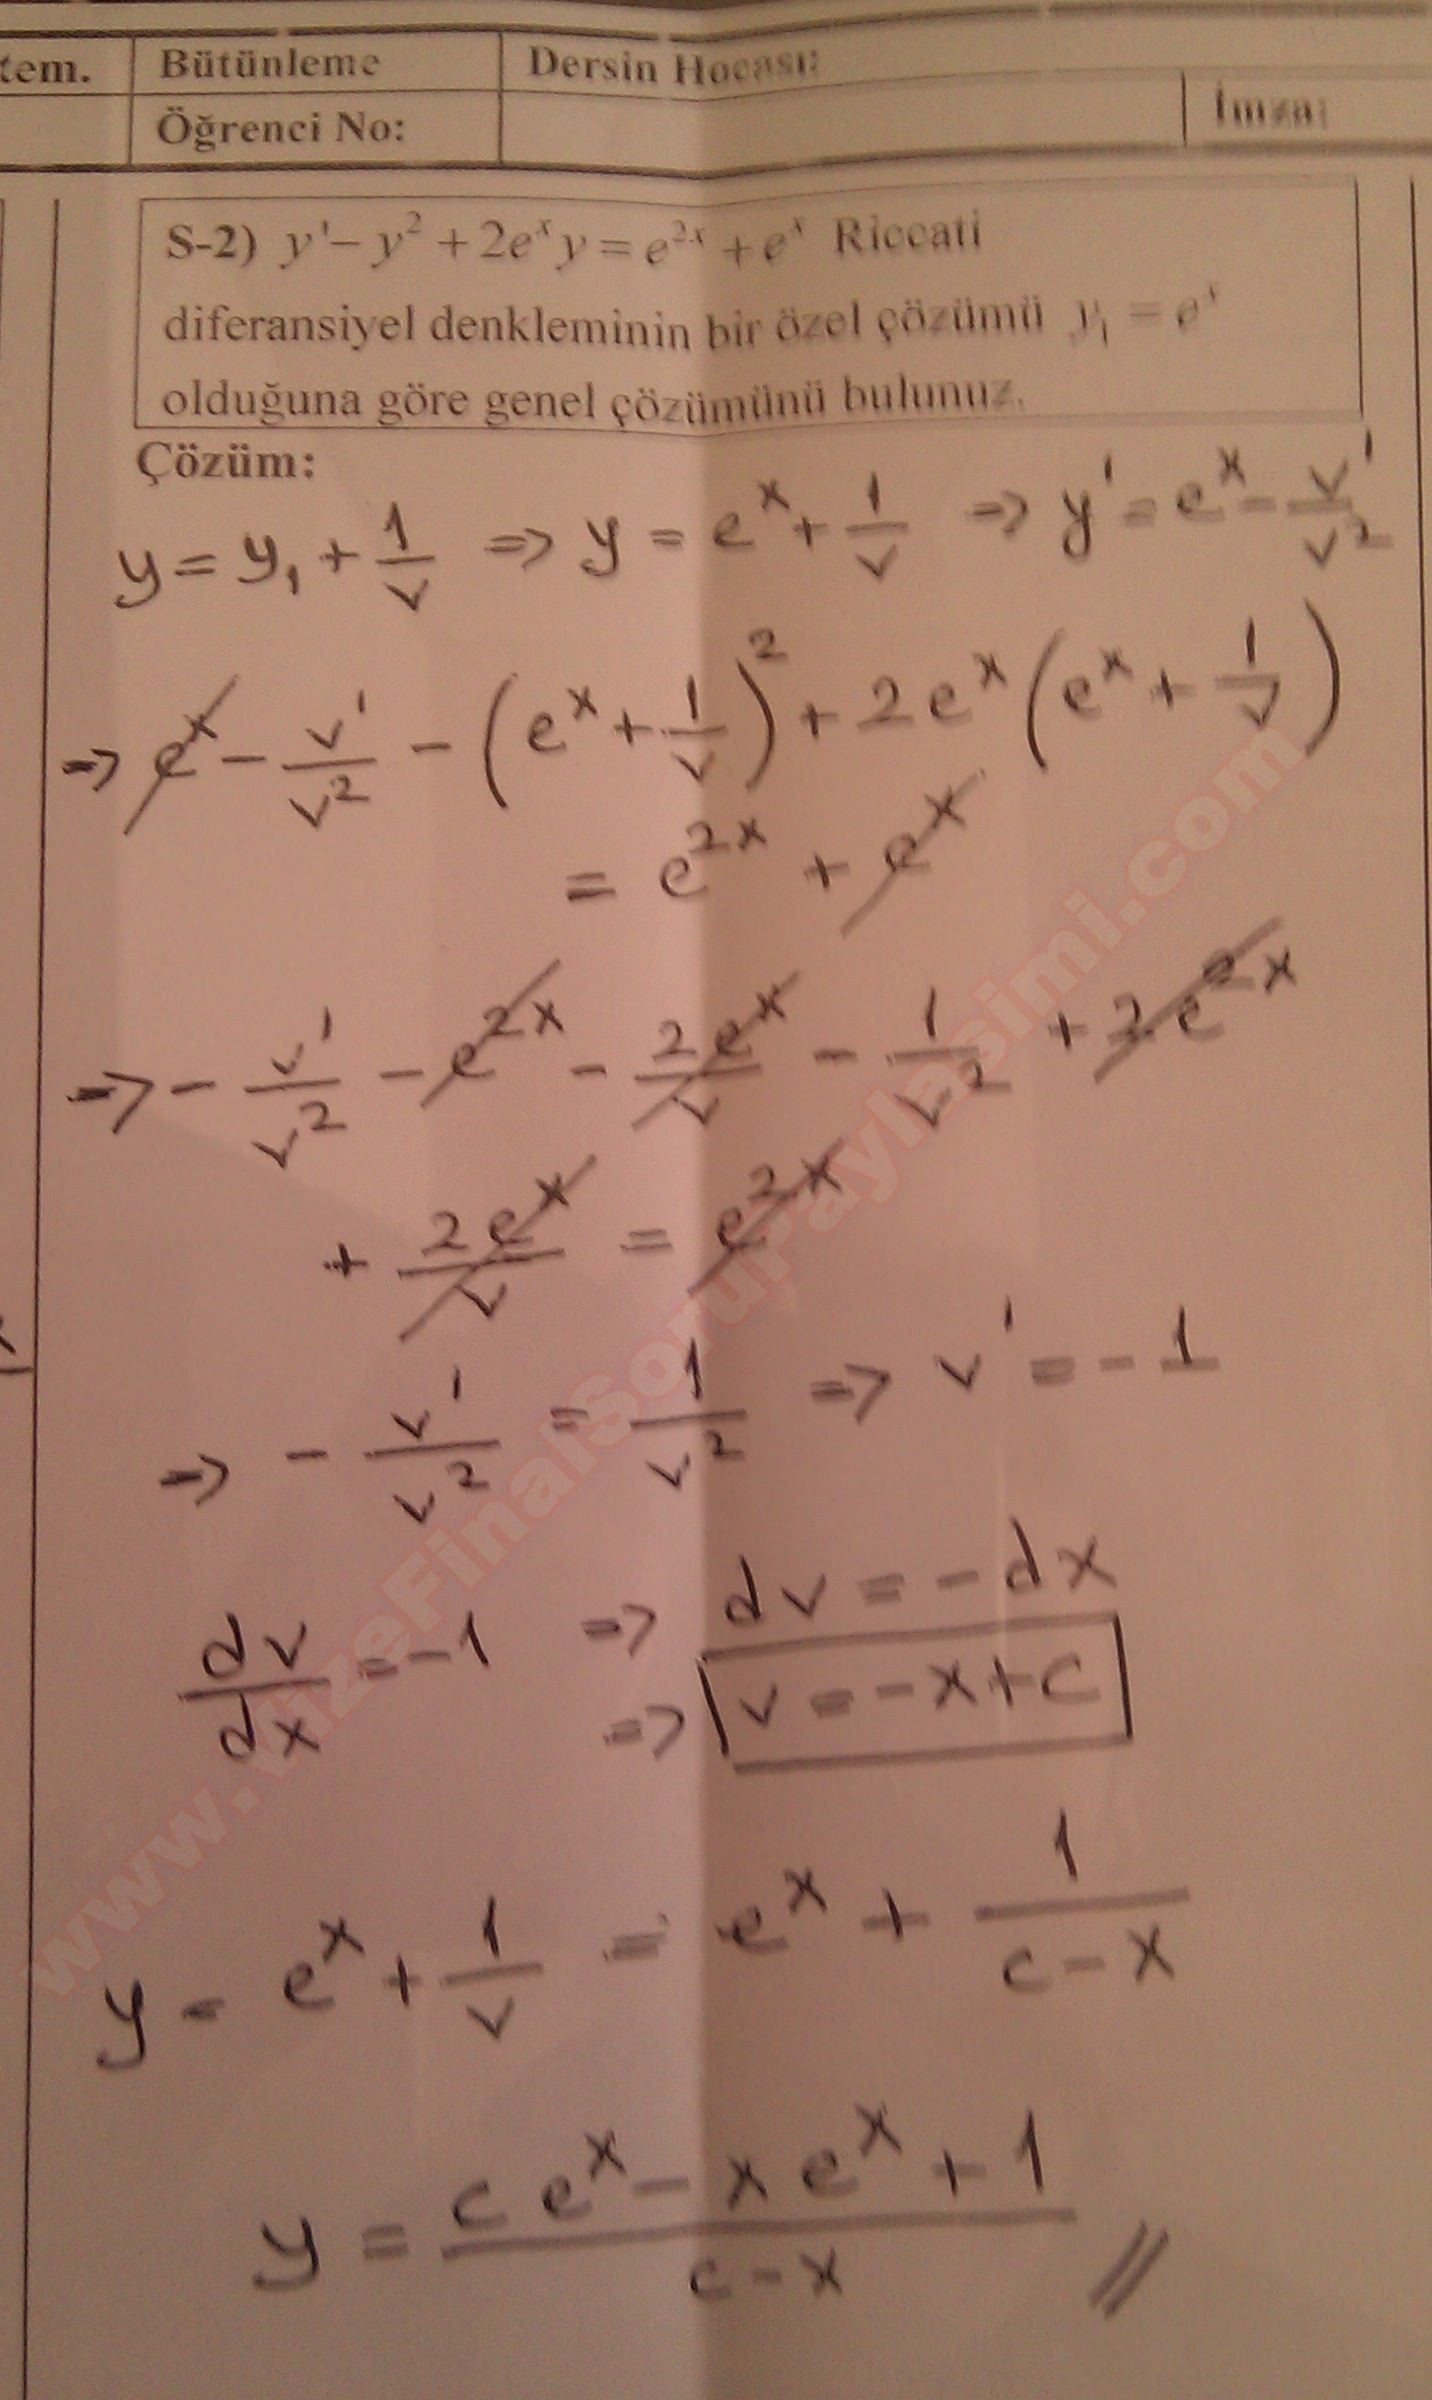 tem. Bütünleme Dersin Hocası:
Öğrenci No: İmza:
S-2) y' – y² + 2eˣy = e²ˣ + eˣ Riccati
diferansiyel denkleminin bir özel çözümü y₁ = eˣ
olduğuna göre genel çözümünü bulunuz.
Çözüm:
y = y₁ + 1/v => y = eˣ + 1/v => y' = eˣ - v'/v²
=> eˣ - v'/v² - (eˣ + 1/v)² + 2eˣ(eˣ + 1/v)
= e²ˣ + eˣ
=> - v'/v² - e²ˣ - 2eˣ/v - 1/v² + 2e²ˣ
+ 2eˣ/v = e²ˣ
=> - v'/v² = 1/v² => v' = -1
dv/dx = -1 => dv = -dx
=> v = -x + c
y = eˣ + 1/v = eˣ + 1/(c - x)
y = (c eˣ - x eˣ + 1)/(c - x) //
www.VizeFinalSoruPaylasimi.com